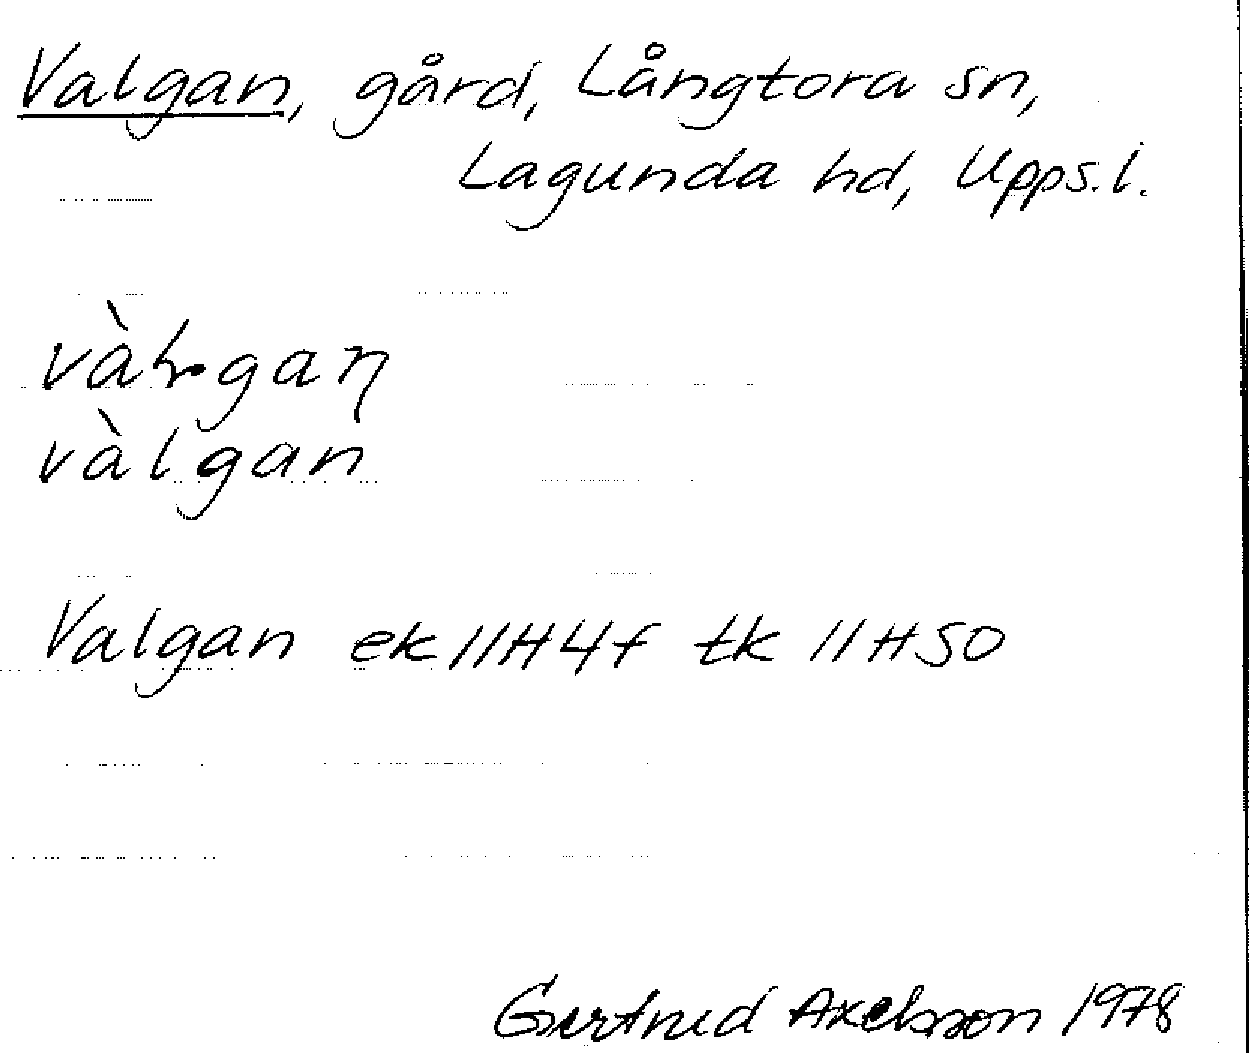 Valgan, gård, Långtora sn,
Lagunda hd, Upps.l.
vàlgan
Valgan ek 11H4f tk 11H50
Gertrud Axelsson 1978